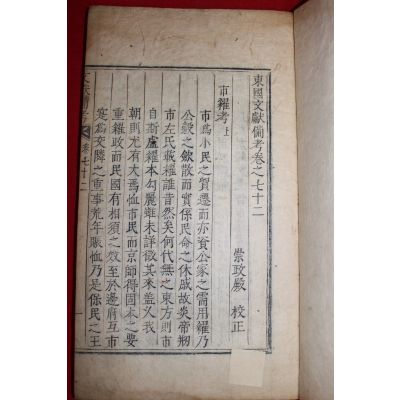 東國文獻備考卷之七十二
崇政殿 校正
市糴考 上
市爲小民之貿遷而亦資公家之需用糴乃
公穀之斂散而實係民命之休戚故炎帝刱
市左氏載糴誰昔然矣何代無之東方則市
自斯盧糴本勾麗雖未詳徵其來盖久我
朝則尤有大焉恤市民而京師得固本之要
重糴政而民國有相須之效至於邊府互市
寔爲交隣之重事荒年賑恤乃是保民之王
文獻備考 卷七十二